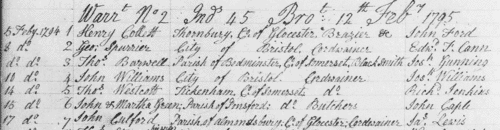 Warr.t No 2 Ind.s 45 Bro.t 12.th Feb.y 1795
5 Feby. 1794 1 Henry Collett Thornbury, C.o of Glocester Brazier &c John Ford
8 d.o 2 Geo: Spurrier City of Bristol Cordwainer Edw.d T. Cann
d.o d.o 3 Tho.s Barwell Parish of Bedminster, C.o of Somerset, Black Smith Jos.h Gunning
10 d.o 4 John Williams City of Bristol Cordwainer Jos.h Williams
14 d.o 5 Tho.s Westcott Tickenham, C.o of Somerset d.o Rich.d Jenkins
15 d.o 6 John & Martha Green; Parish of d.o Butchers John Caple
17 d.o 7 John Culford Parish of Almondsbury C.o of Glocester; Cordwainer Ja.s Lewis